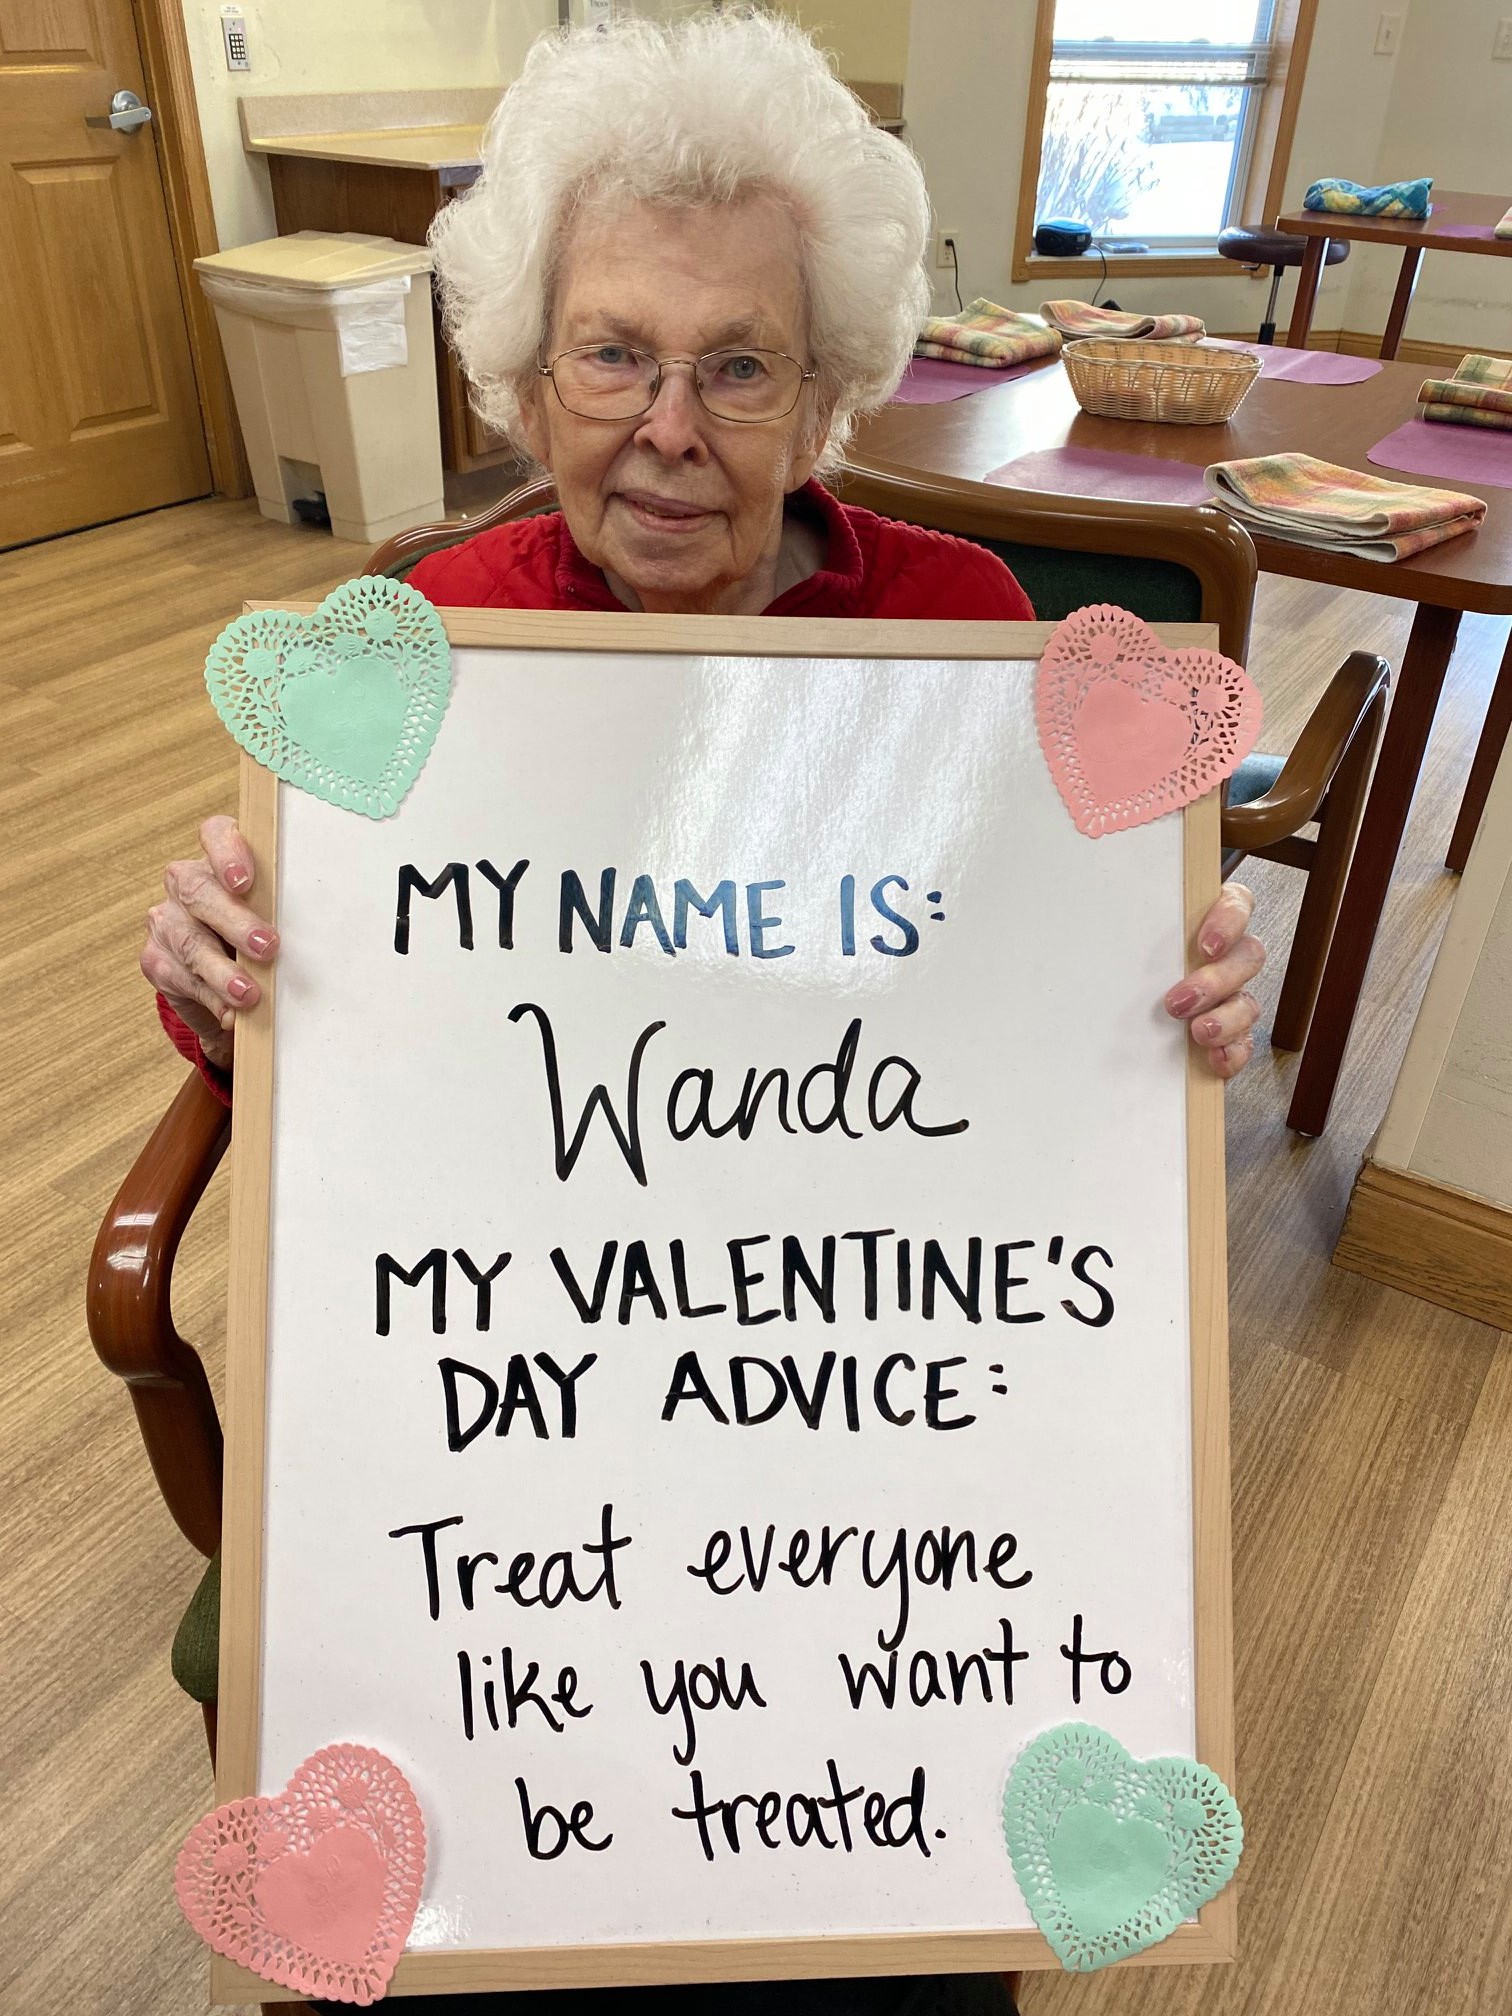 MY NAME IS:
Wanda
MY VALENTINE'S
DAY ADVICE:
Treat everyone
like you want to
be treated.